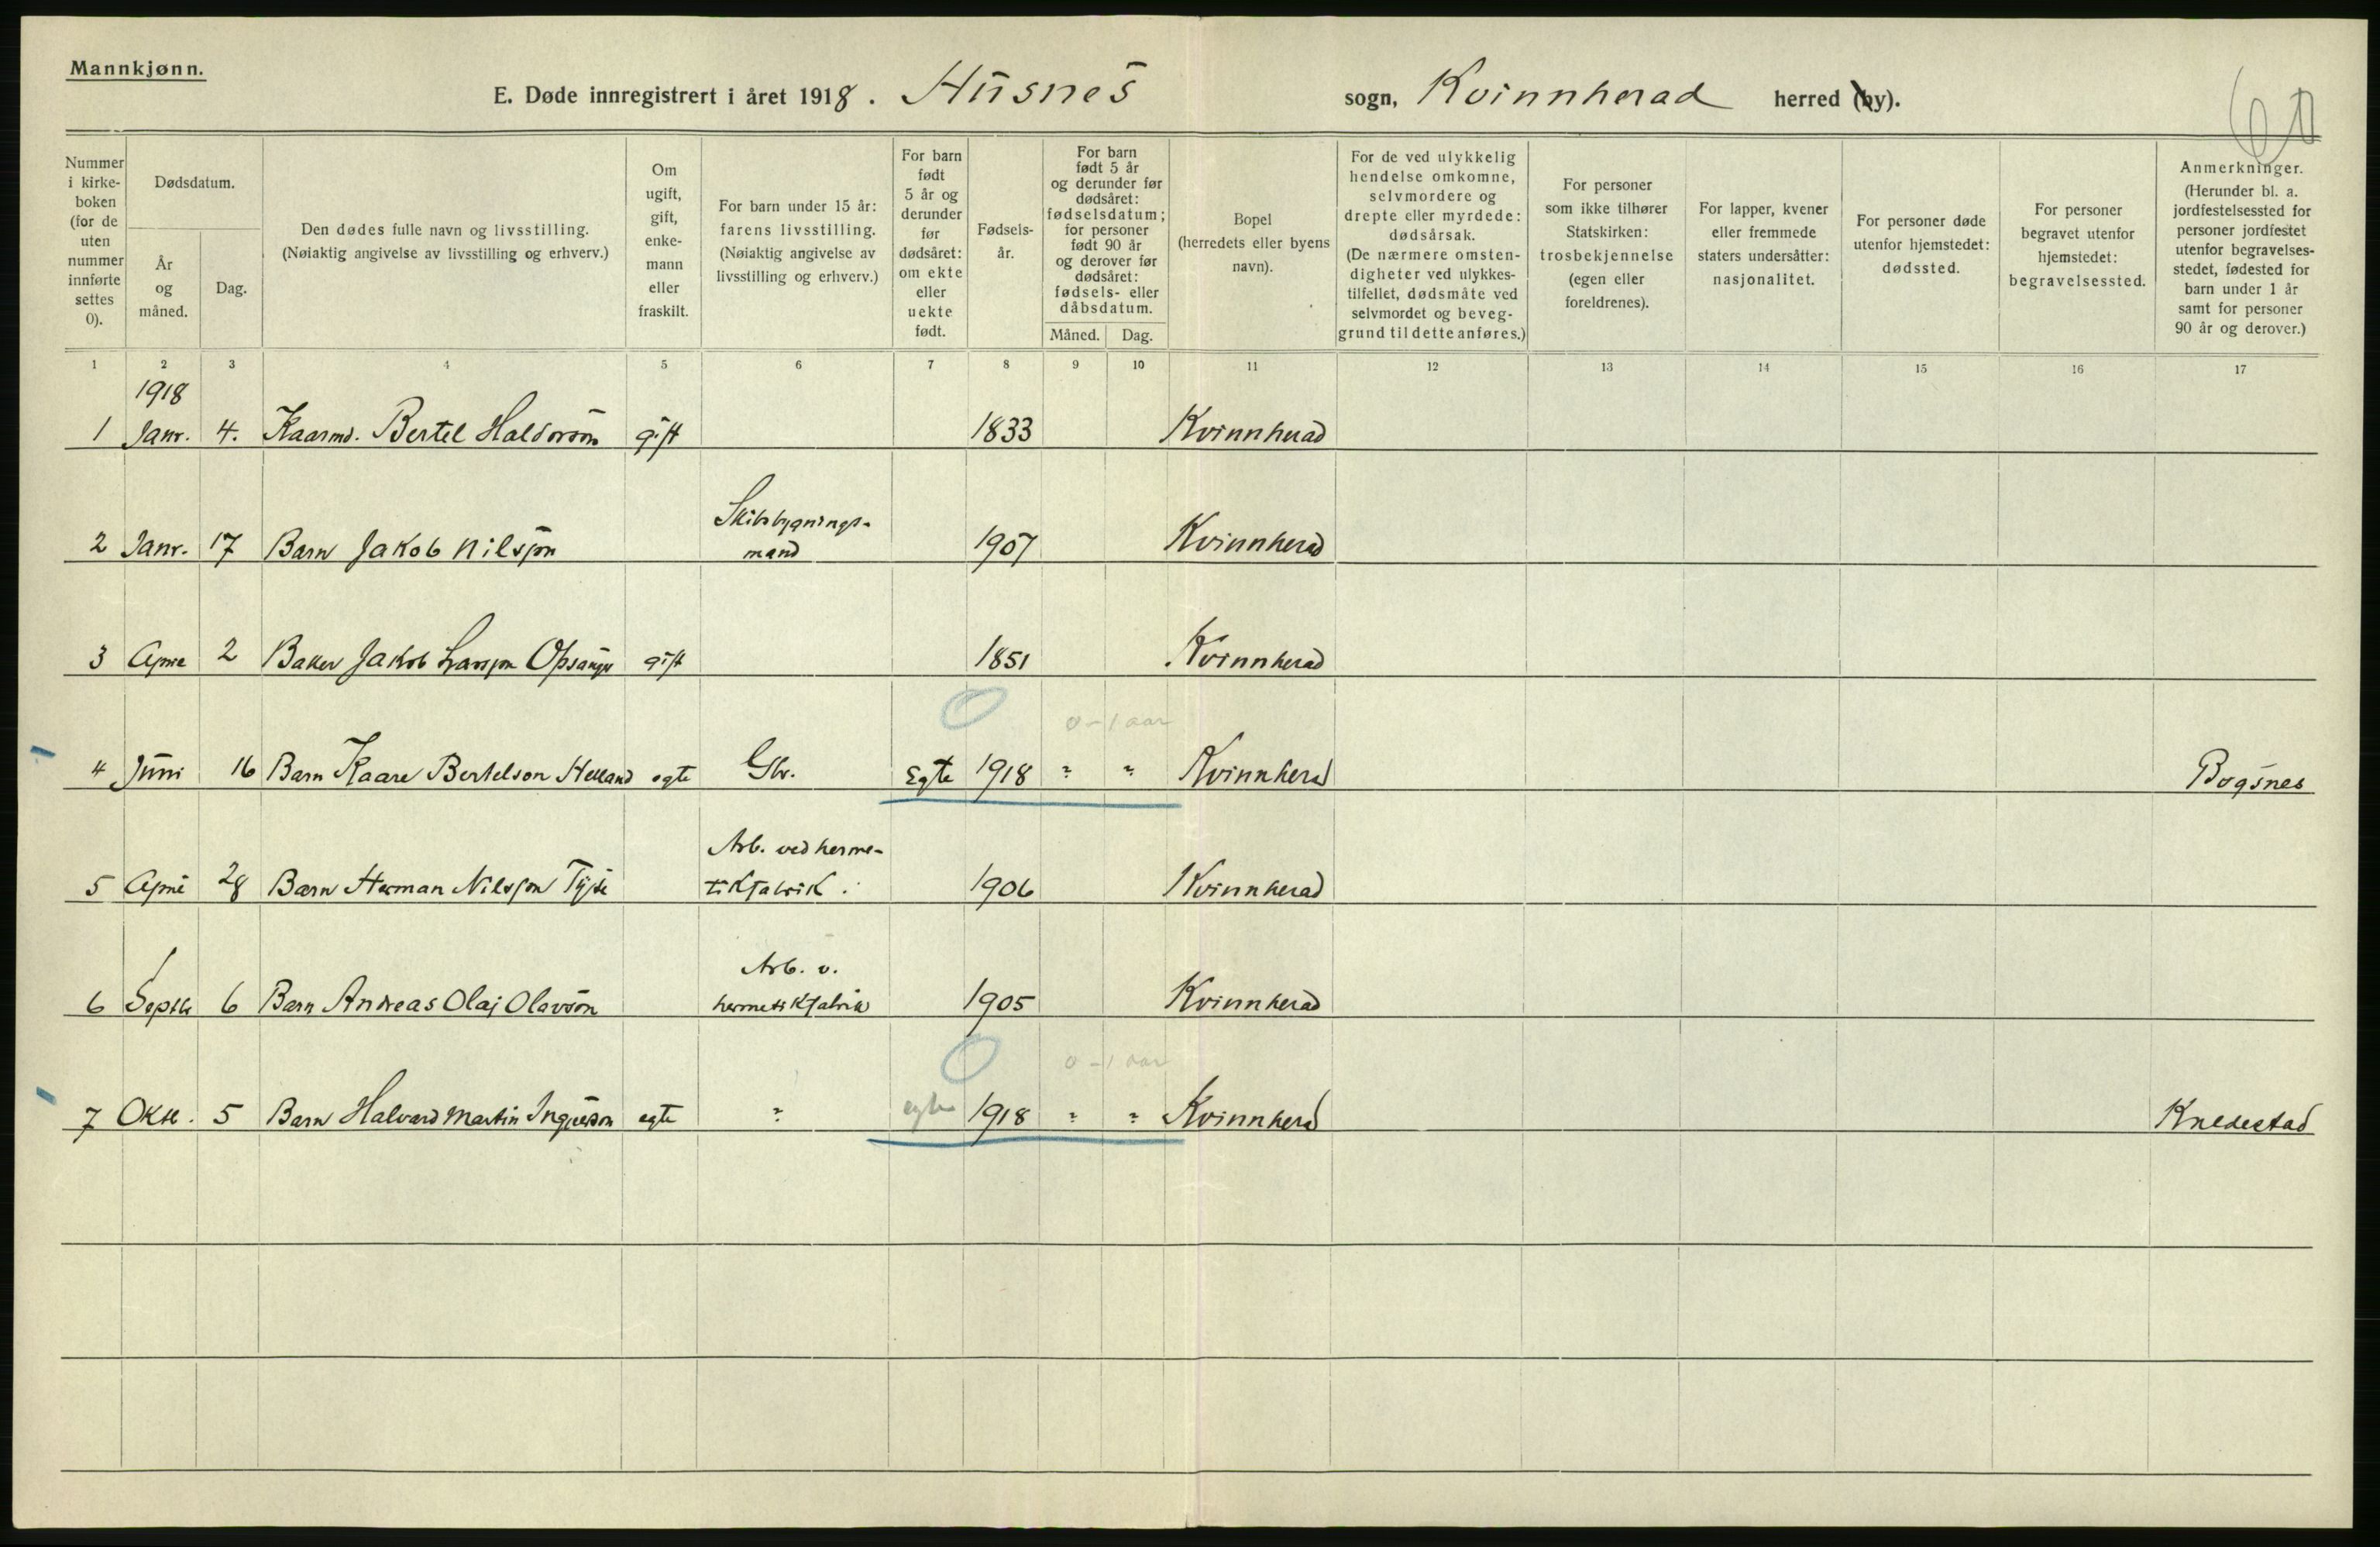 Mannkjønn.
E. Døde innregistrert i året 1918. Husnes sogn, Kvinnherad herred (by).
Nummer i kirke-boken (for de uten nummer innførte settes 0).
Dødsdatum.
År og måned.
Dag.
Den dødes fulle navn og livsstilling.
(Nøiaktig angivelse av livsstilling og erhverv.)
Om ugift, gift, enke-mann eller fraskilt.
For barn under 15 år: farens livsstilling.
(Nøiaktig angivelse av livsstilling og erhverv.)
For barn født 5 år og derunder før dødsåret: om ekte eller uekte født.
Fødsels-år.
For barn født 5 år og derunder før dødsåret: fødselsdatum; for personer født 90 år og derover før dødsåret: fødsels- eller dåbsdatum.
Måned. Dag.
Bopel (herredets eller byens navn).
For de ved ulykkelig hendelse omkomne, selvmordere og drepte eller myrdede: dødsårsak.
(De nærmere omsten-digheter ved ulykkes-tilfellet, dødsmåte ved selvmordet og beveg-grund til dette anføres.)
For personer som ikke tilhører Statskirken: trosbekjennelse (egen eller foreldrenes).
For lapper, kvener eller fremmede staters undersåtter: nasjonalitet.
For personer døde utenfor hjemstedet: dødssted.
For personer begravet utenfor hjemstedet: begravelsessted.
Anmerkninger.
(Herunder bl. a. jordfestelsessted for personer jordfestet utenfor begravelses-stedet, fødested for barn under 1 år samt for personer 90 år og derover.)
1 2 3 4 5 6 7 8 9 10 11 12 13 14 15 16 17
1918
1 Janr. 4. Kaarmd. Bertel Haldorson gift 1833 Kvinnherad
Skibsbygnings-
2 Janr. 17 Barn Jakob Nilsson mand 1907 Kvinnherad
3 2 Baker Jakob Larsson gift 1851 Kvinnherad
0-1 aar
4 Juni 16 Barn Kaare Bertelson Helland egte Gbr. Egte 1918 " " Kvinnherad Bogsnes
Arb. ved herme-
5 28 Barn Herman Nilsson tikfabrik. 1906 Kvinnherad
Arb. v.
6 Septbr 6 Barn Andreas Olaf Olavson hermetikfabrik 1905 Kvinnherad
0-1 aar
7 Oktb. 5 Barn Halvard Martin egte " egte 1918 " " Kvinnherad